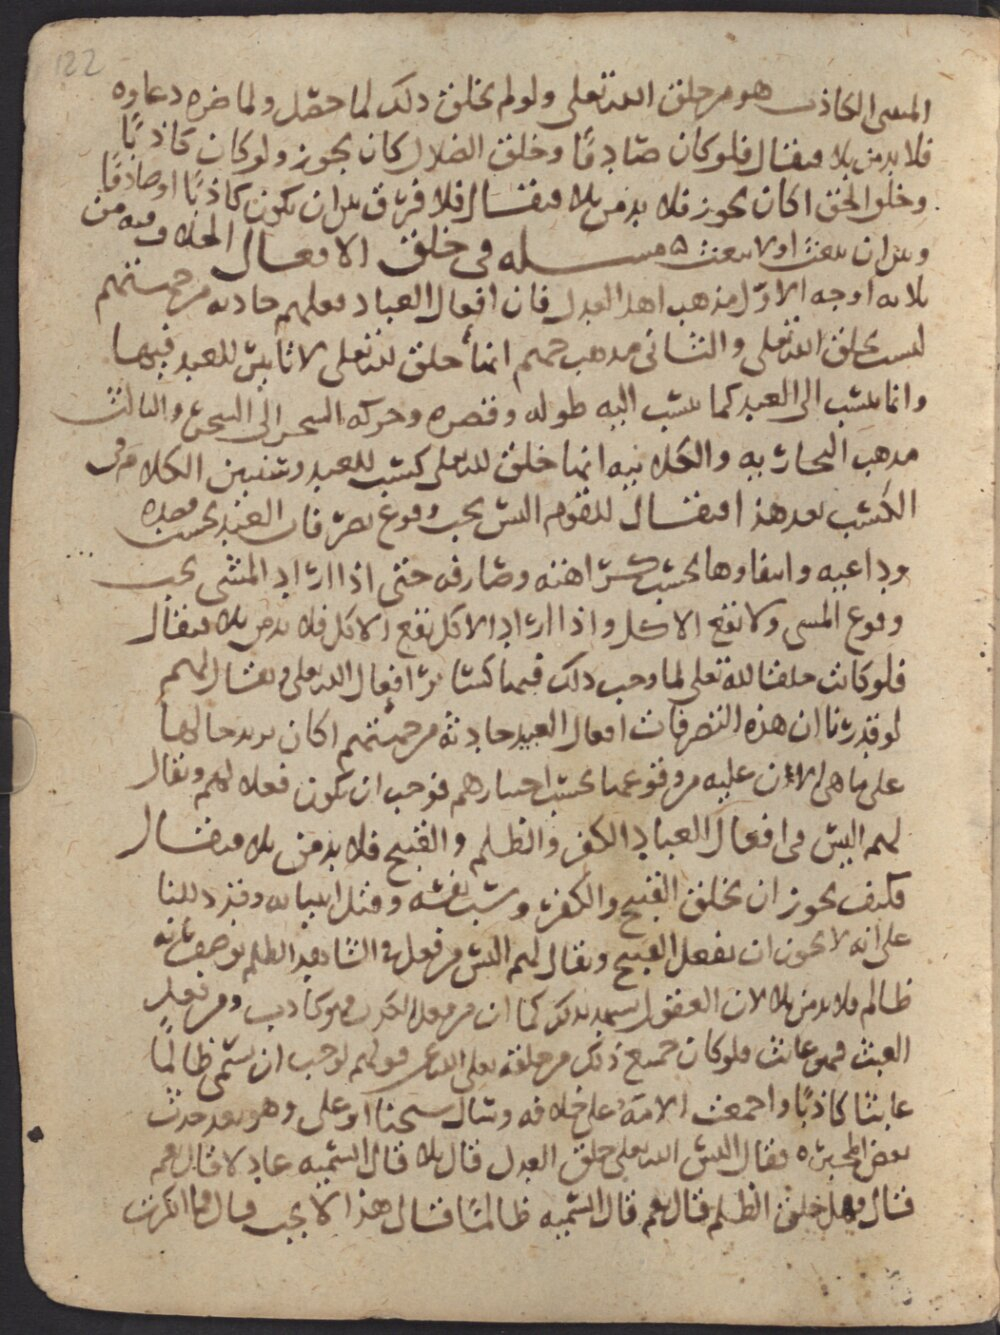 122
المتنبي الكاذب هو من خلق الله تعلى ولو لم يخلق ذلك لما حصل ولما ضره دعاوه
فلا بد من بلا فيقال فلو كان صادقا وخلق الضلال كان يجوز ولو كان كاذبا
وخلق الحق اكان يجوز فلا بد من بلا فيقال فلا فرق بين ان يكون كاذبا او صادقا
وبين ان يبعث او لا يبعث ه مسله في خلق الافعال الخلاف فيه من
ثلاثه اوجه الاول مذهب اهل العدل فان افعال العباد فعلهم حادثه من جهتهم
ليست بخلق الله تعلى والثاني مذهب جهم انها خلق لله تعلى لا تاثير للعبد فيها
وانما ينسب الى العبد كما ينسب اليه طوله وقصره وحركه الشجر الى الشجر والثالث
مذهب النجاريه والكلابيه انها خلق لله تعلى كسب للعبد وسنبين الكلام في
الكسب بعد هذا فيقال للقوم اليس يجب وقوع تصرفات العبد بحسب قصده
وداعيه وانتفاوها بحسب كراهته وصارفه حتى اذا اراد المشي يجب
وقوع المشي ولا يقع الاكل واذا اراد الاكل يقع الاكل فلا بد من بلا فيقال
فلو كانت خلقا لله تعلى لما وجب ذلك فيها كسائر افعال الله تعلى ويقال لهم
لو قدرنا ان هذه التصرفات افعال العبيد حادثة من جهتهم اكان يزيد حالها
على ما هي الان عليه من وقوعها بحسب اختيارهم فوجب ان يكون فعلا لهم ويقال
لهم اليس في افعال العباد الكفر والظلم والقبيح فلا بد من بلا فيقال
فكيف يجوز ان يخلق القبيح والكفر وسب نفسه وقتل انبيائه وقد دللنا
على انه لا يجوز ان يفعل القبيح ويقال لهم اليس من فعل في الشاهد الظلم يوصف بانه
ظالم فلا بد من بلا لان العقول تشهد بذلك كما ان من فعل الكذب فهو كاذب ومن فعل
العبث فهو عابث فلو كان جميع ذلك من خلقه تعلى الله عن قولهم لوجب ان يسمى ظالما
عابثا كاذبا واجمعت الامة على خلافه وسال شيخنا ابو على وهو بعد حدث
بعض المجبره فقال اليس الله تعلى خلق العدل قال بلا قال اتسميه عادلا قال نعم
قال فهل خلق الظلم قال نعم قال اتسميه ظالما قال هذا لا يجب قال فما انكرت